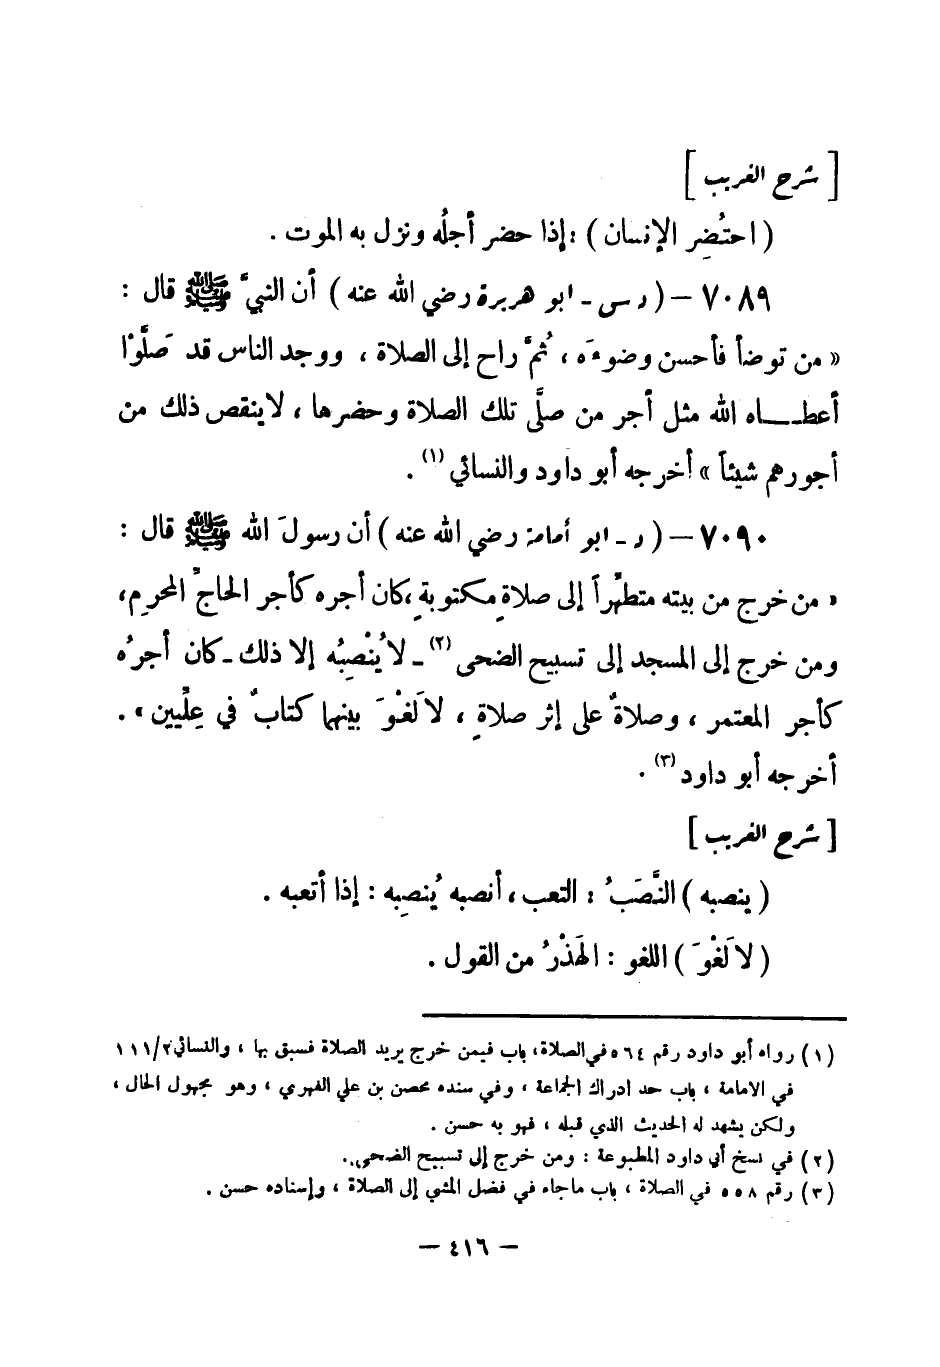 [ شرح الغريب ]
( احتُضِر الإنسان ) : إذا حضر أجلُه ونزل به الموت .
٧٠٨٩ – ( د س - ابو هريرة رضي الله عنه ) أن النبيَّ ﷺ قال :
« من توضأ فأحسن وضوءَه ، ثُمَّ راح إلى الصلاة ، ووجد الناس قد صَلَّوْا
أعطــــاه الله مثل أجر من صلَّى تلك الصلاة وحضرها ، لاينقص ذلك من
أجورهم شيئاً » أخرجه أبو داود والنسائي (١) .
٧٠٩٠ – ( د - ابو أمامة رضي الله عنه ) أن رسولَ الله ﷺ قال :
« من خرج من بيته متطهِّراً إلى صلاةٍ مكتوبةٍ ، كان أجره كأجر الحاجِّ المحرِم ،
ومن خرج إلى المسجد إلى تسبيح الضحى (٢) - لا يُنْصِبُه إلا ذلك - كان أجرُه
كأجر المعتمر ، وصلاةٌ على إثر صلاةٍ ، لا لَغْوَ بينهما كتابٌ في عِلِّيين » .
أخرجه أبو داود (٣) .
[ شرح الغريب ]
( ينصبه ) النَّصَبُ : التعب ، أنصبه يُنصِبه : إذا أتعبه .
( لا لَغْوَ ) اللغو : الهَذْرُ من القول .
(١) رواه أبو داود رقم ٥٦٤ في الصلاة ، باب فيمن خرج يريد الصلاة فسبق بها ، والنسائي ٢/١١١
في الامامة ، باب حد ادراك الجماعة ، وفي سنده محصن بن علي الفهري ، وهو مجهول الحال ،
ولكن يشهد له الحديث الذي قبله ، فهو به حسن .
(٢) في نسخ أبي داود المطبوعة : ومن خرج إلى تسبيح الضحى .
(٣) رقم ٥٥٨ في الصلاة ، باب ماجاء في فضل المشي إلى الصلاة ، وإسناده حسن .
– ٤١٦ –